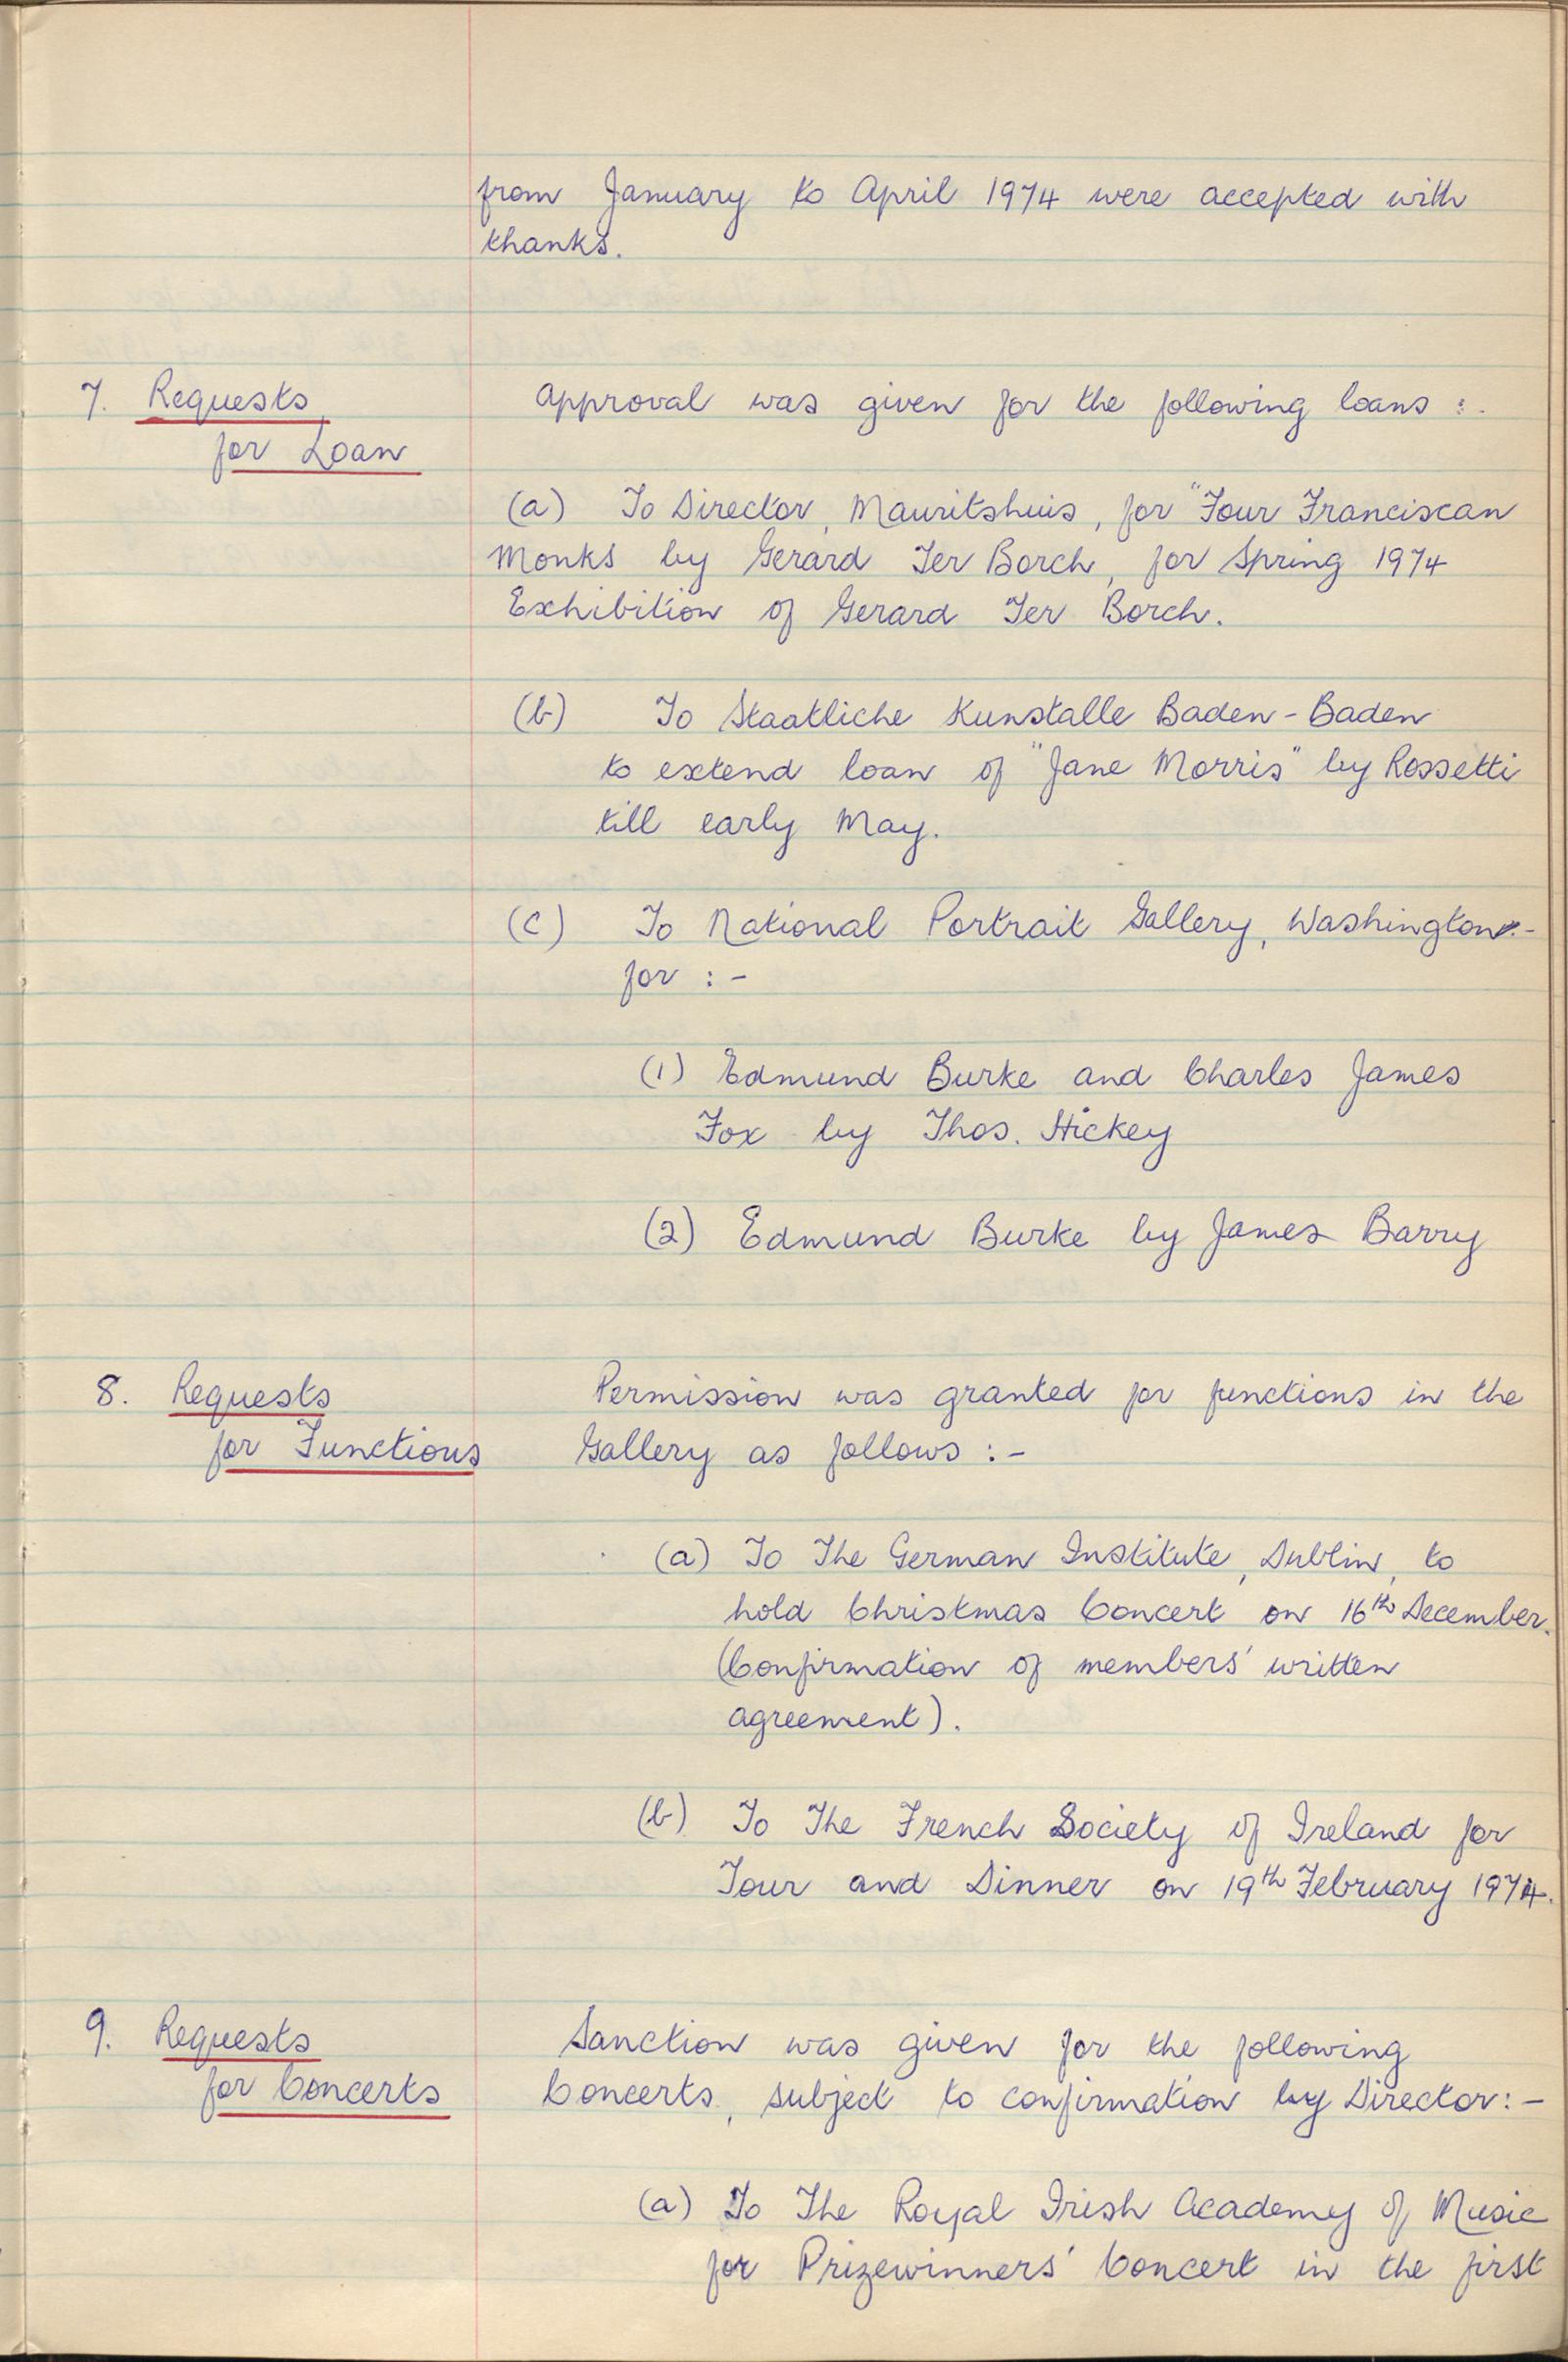 from January to April 1974 were accepted with
thanks.
7. Requests
for Loan
Approval was given for the following loans :.
(a) To Director, Mauritshuis, for "Four Franciscan
Monks by Gerard Ter Borch, for Spring 1974
Exhibition of Gerard Ter Borch.
(b) To Staatliche Kunstalle Baden-Baden
to extend loan of "Jane Morris" by Rossetti
till early May.
(c) To National Portrait Gallery, Washington.-
for :-
(1) Edmund Burke and Charles James
Fox by Thos. Hickey
(2) Edmund Burke by James Barry
8. Requests
for Functions
Permission was granted for functions in the
Gallery as follows :-
(a) To The German Institute, Dublin, to
hold Christmas Concert on 16th December.
(Confirmation of members' written
agreement).
(b) To The French Society of Ireland for
Tour and Dinner on 19th February 1974.
9. Requests
for Concerts
Sanction was given for the following
Concerts, subject to confirmation by Director:-
(a) To The Royal Irish Academy of Music
for Prizewinners' Concert in the first